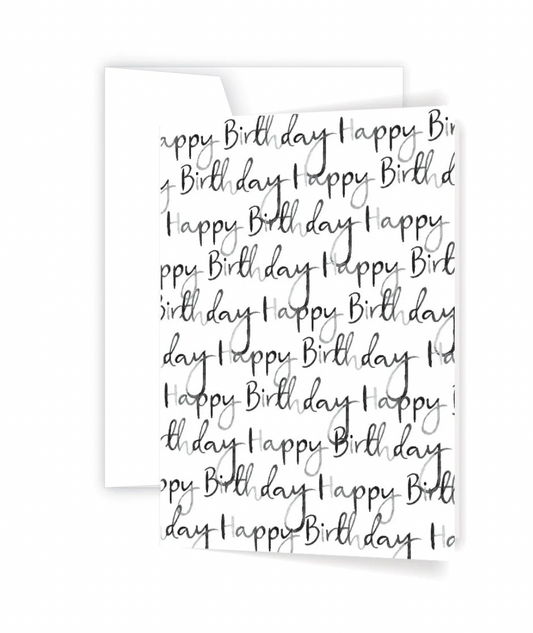 appy Birthday Happy Bir
y Birthday Happy Birthd
Happy Birthday Happy
ppy Birthday Happy Birt
Birthday Happy Birthday
day Happy Birthday Ha
Happy Birthday Happy B
thday Happy Birthday
ppy Birthday Happy Birt
day Happy Birthday Ha